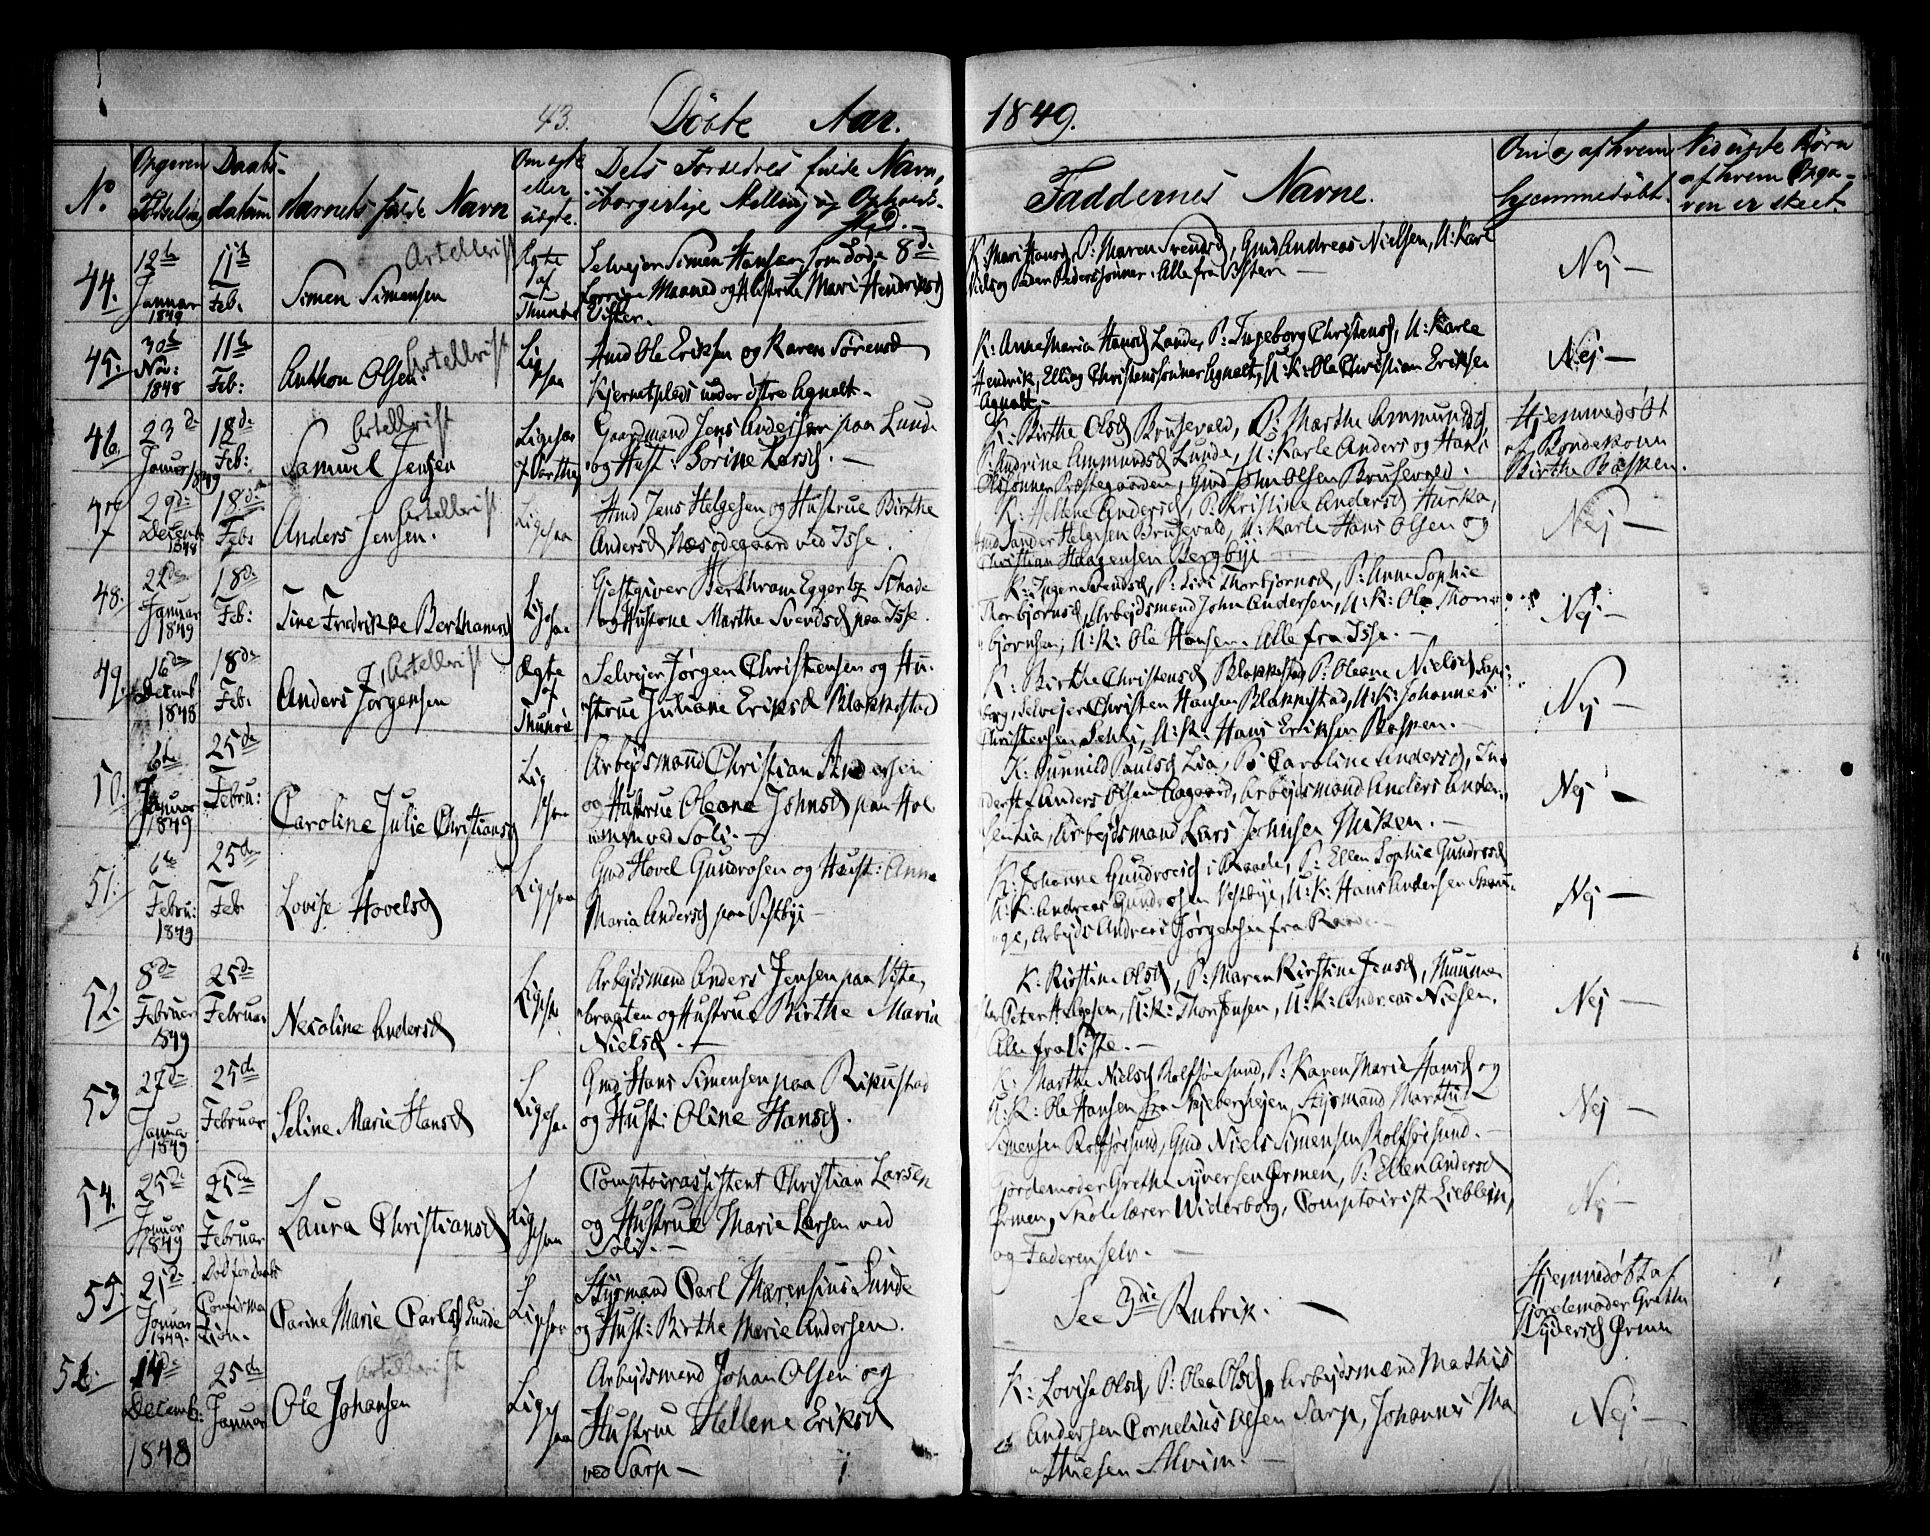 43. Döbte Aar. 1849.
No
Opgiven Fødselsdag
Daabsdatum
Barnets fulde Navn
Om ægte eller uægte.
Dets Forældres fulde Navn, borgerlige Stilling og Opholdssted.
Faddernes Navne.
Om og af hvem hjemmedøbt.
Ved uægte Børn af hvem Opgaven er skeet.
44.
12te Januar 1849
11te Feb.
Artellerist
Simen Simensen
Ægte af
Selvejer Simen Hansen som døde 8de
forrige Maaned og Hustrue Mari Hendriksd
Vister.
K: Mari Hansd, P: Maren Svendsd, Gmd Andreas Nielsen, U: Karle
Niels og Peder Pederssønner. Alle fra Vister —
Nej —
45.
30te Nov: 1848
11te Feb:
Artellerist
Anthon Olsen.
Ligesaa
Hmd Ole Eriksen og Karen Sörensd
Kjernetplads under östre Agnalt —
K: Anne Maria Hansd Lande, P: Ingeborg Christensd, U: Karle
Hendrik, Elling Christenssönner Agnalt, U: K: Ole Christian Eriksen
Agnalt —
Nej —
46.
23de Januar 1849
18de Feb:
Artellerist
Samuel Jensen
Ligesaa
Gaardmand Jens Andersen paa Lunde
og Hust: Sorine Larsd. —
K: Birthe Olsd Brusevold, P: Marthe Ammundsd,
P: Andrine Ammundsd Lunde, U: Karle Anders og Hans
Olssönner Præstegaarden, Gmd John Olsen Brusevold.
Hjemmedøbt
af Bondekonn
Birthe Bossen.
47
29de Decemb: 1848
18de Feb:
Artellerist
Anders Jensen.
Ligesaa
Hmd Jens Helgesen og Hustrue Birthe
Andersd Næsödegaard ved Isse.
K: Hellene Andersd, P: Kristine Andersd Hurka,
Hmd Sander Helgesen Brusevold, U: Karle Hans Olsen og
Christian Haagensen Bergbye
Nej —
48.
22de Januar 1849
18de Feb:
Tine Fredrikke Berthamsd
Ligesaa
Gjestgiver Berthram Eggertz Schade
og Hustrue Marthe Svendsd paa Isse.
K: Inger Svendsd, P: Livi Thorbjörnsd, P: Anne Sophie
Thorbjörnsd, Arbejdsmand John Andersen, U: K: Ole Thor-
björnsen, U: K: Ole Hansen. Alle fra Isse. —
Nej. —
49.
16de Decemb 1848
18de Feb.
Artellerist
Anders Jörgensen
Ægte af
Selvejer Jörgen Christensen og Hu-
strue Juliane Eriksd Blakkestad
K: Birthe Christensd Blakkestad P: Oleane Nielsd
borg, Selvejer Christen Hansen Blakkestad, U: K: Johannes
Christensen, U: K: Hans Eriksen Bossen. —
Nej —
50.
6te Januar 1849
25de Febru:
Caroline Julie Christiansd
Ligesaa
Arbejdsmand Christian Andersen
og Hustrue Oleane Johnsd paa Hol
men ved Soli. —
K: Gunnild Paulsd Lia, P: Caroline Andersd, In-
derst Anders Olsen Aagaard, Arbejdsmand Anders Ander-
sen Lia, Arbejdsmand Lars Johnsen —
Nej —
51.
6te Febru: 1849
25de Feb
Lovise Hovelsd
Ligesaa
Gmd Hovel Gundrosen og Hust: Anne
Maria Andersd paa Vestbye —
K: Johanne Gundrosd i Raade, P: Ellen Sophie Gundrosd
U: K: Andreas Gundrosen Vestbye, U: K: Hans Andersen
Arbejds Andreas Jörgensen fra Raade —
Nej —
52.
8de Februar 1849
25de Februar
Nicoline Andersd
Ligesaa
Arbejdsmand Anders Jensen paa Viste-
braaten og Hustrue Birthe Maria
Nielsd. —
K: Kirstine Olsd, P: Maren Kirstine Jensd, Huusmand
Peter Helgesen, U: K: Thor Jensen, U: K: Andreas Nielsen.
Alle fra Viste. —
Nej —
53
27de Januar 1849
25de Februar
Seline Marie Hansd
Ligesaa
Gmd Hans Simensen paa Rikustad
og Hust: Oline Hansd.
K: Marthe Nielsd Rolfsöesund, P: Karen Marie Hansd og
U: K: Ole Hansen fra Skjeberghejen, Styrmand Marthin
Simensen Rolfsöesund, Gmd Niels Simensen Rolfsöesund. —
Nej —
54.
25de Januar 1849
25de Februar
Laura Christiansd
Ligesaa
Comptoirassistent Christian Larsen
og Hustrue Marie Larsen ved
Soli. —
Gjordemoder Grethe Syversen Ørmen, P: Ellen Andersd
Ørmen, Skolelærer Widerborg, Comptoirist Lieblein,
og Faderen selv. —
Nej
55.
21de Januar 1849.
Död før Daabs
Confirmation.
Carine Marie Carlsd Sunde
Ligesaa
Styrmand Carl Marensius Sunde
og Hust: Birthe Marie Andersen.
See 3die Rubrik. —
Hjemmedøbt af
Gjordemoder Grethe
Sydersd Ørmen
56.
14de Decemb: 1848
25de Januar
Artellerist
Ole Johansen
Ligesaa
Arbejdsmand Johan Olsen og
Hustrue Hellene Eriksd
ved Sarp —
K: Lovise Olsd, P: Olea Olsd, Arbejdsmænd Mathis
Andersen Cornelius Olsen Sarp, Johannes Ma
thiesen Alvim. —
Nej —